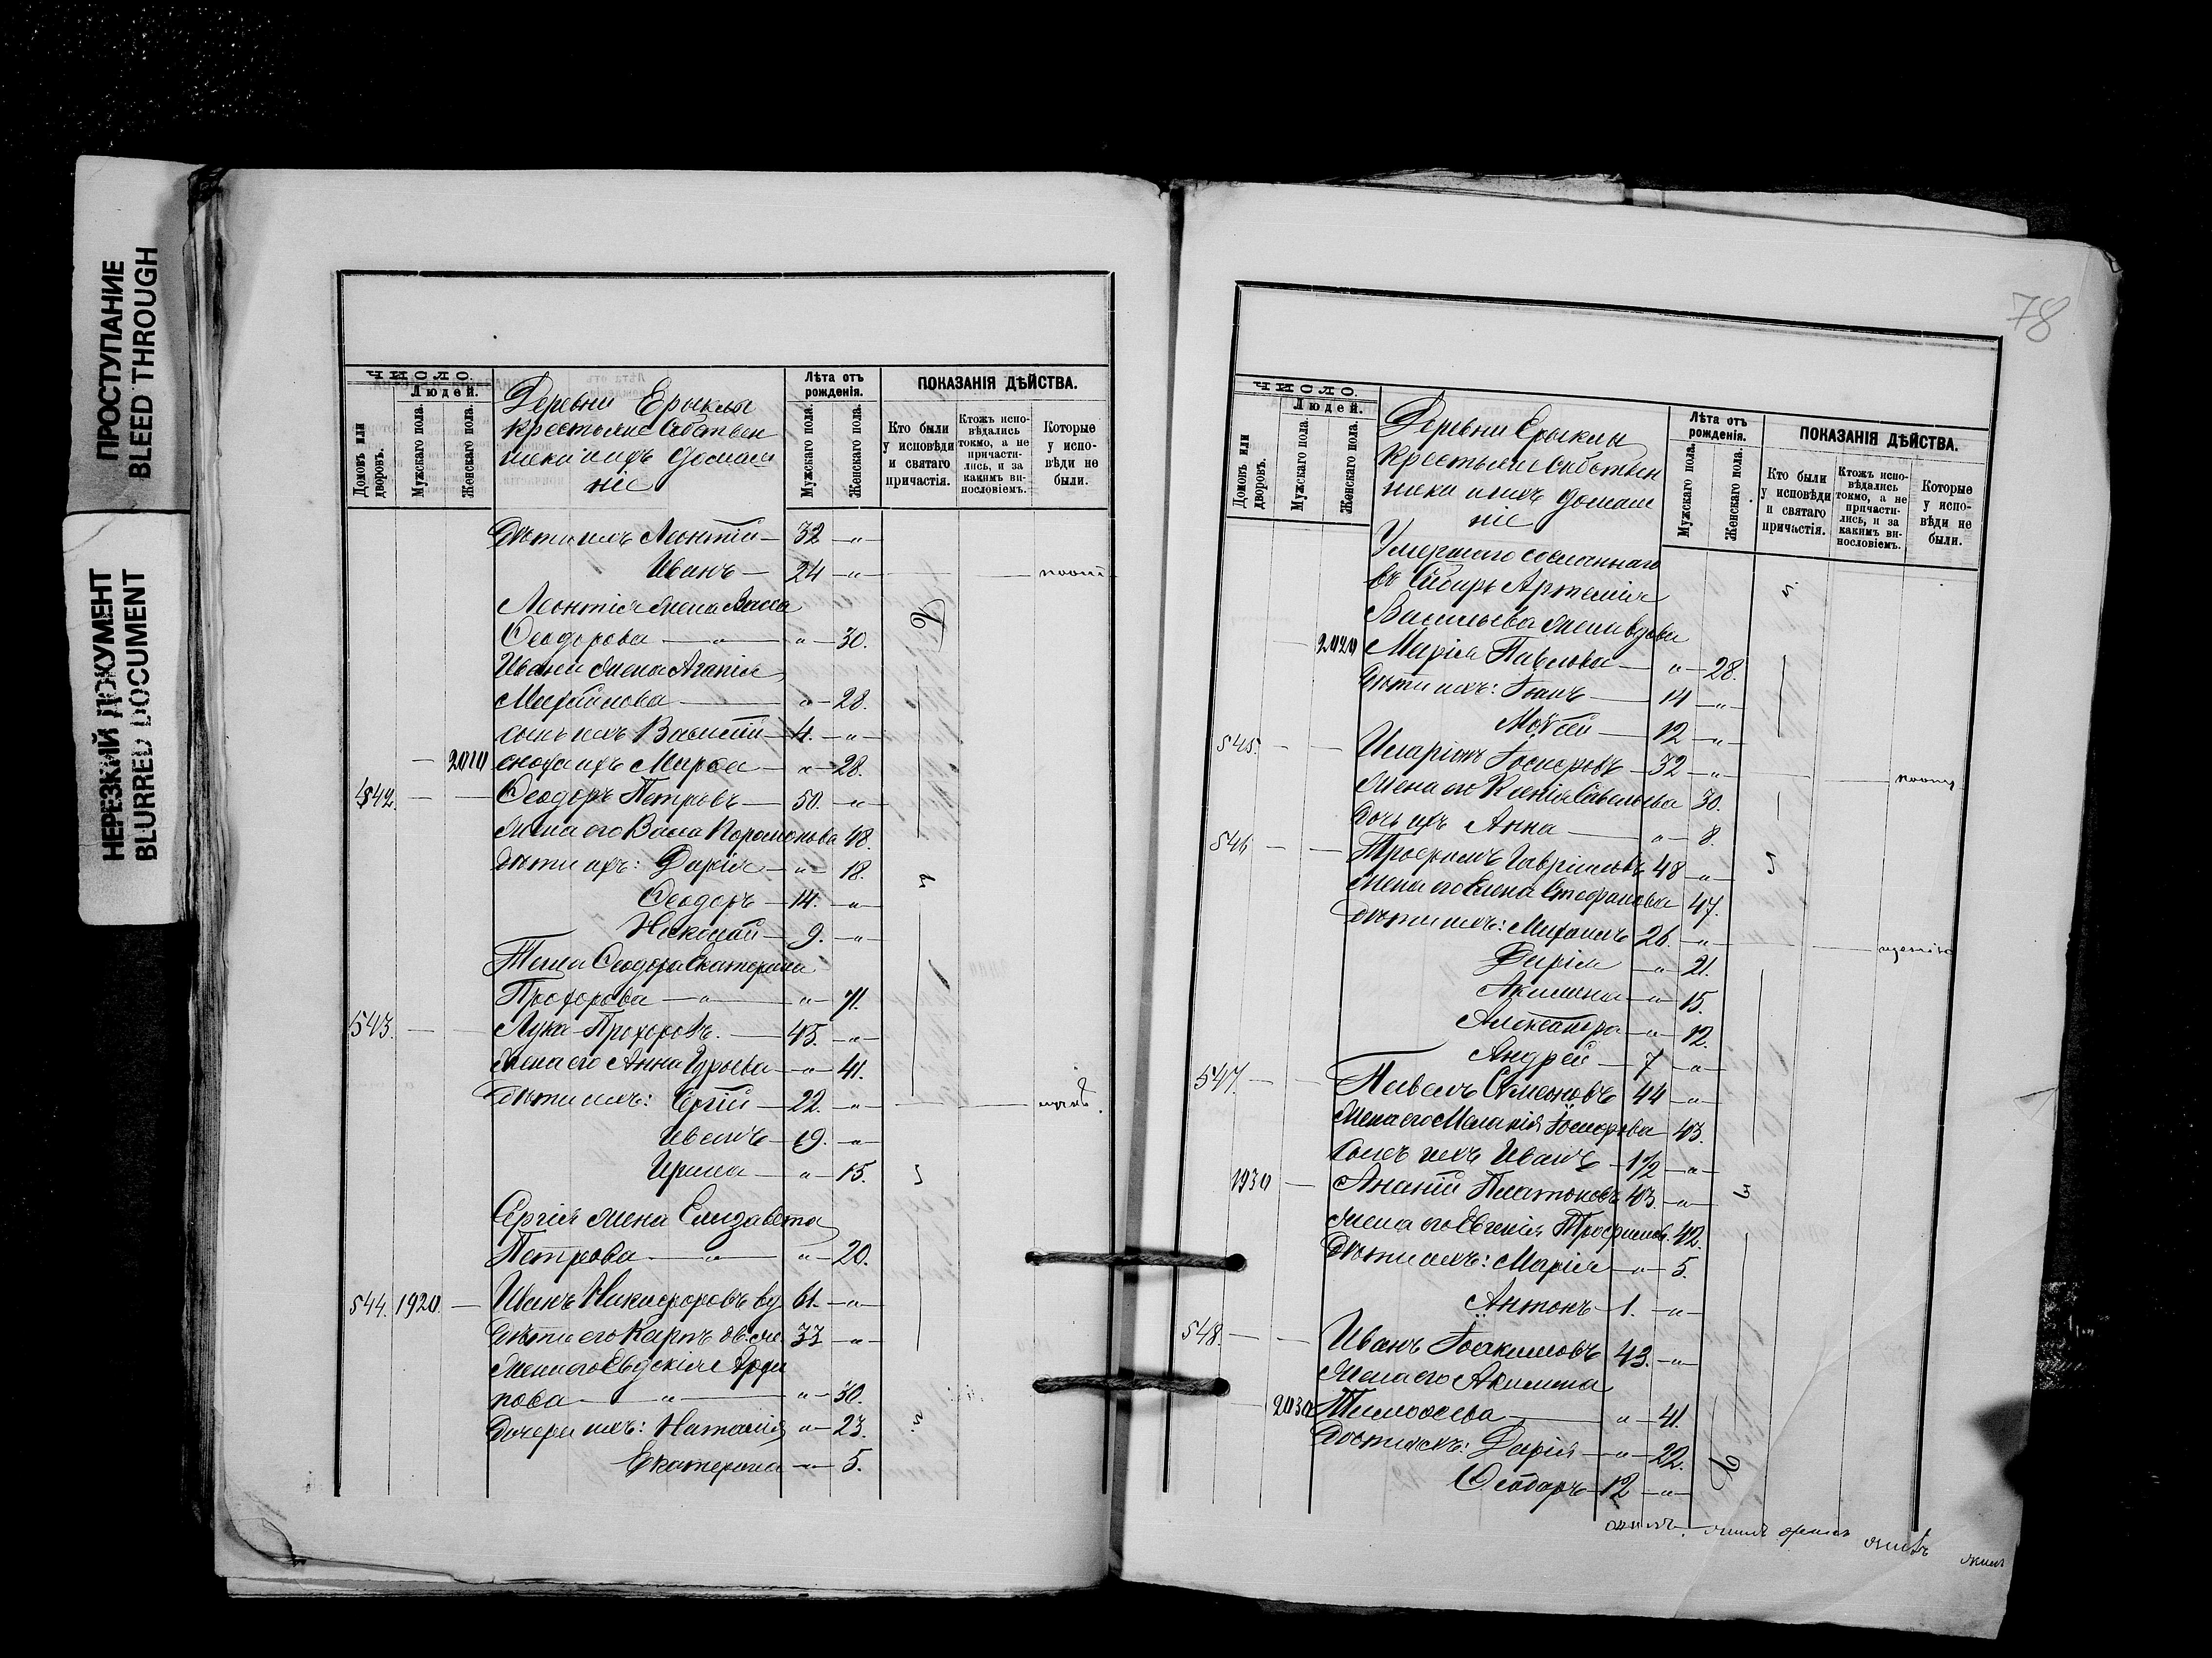 ПРОСТУПАНИЕ
BLEED THROUGH
НЕРЕЗКИЙ ДОКУМЕНТ
BLURRED DOCUMENT
ЧИСЛО
Людей.
Домовъ или дворовъ.
Мужскаго пола.
Женскаго пола.
Деревни Ерыклы
крестьяне собствен
ники и ихъ домаш
ніе
Лѣта отъ рожденія.
Мужскаго пола.
Женскаго пола.
ПОКАЗАНІЯ ДѢЙСТВА.
Кто были у исповѣди и святаго причастія.
Ктожъ исповѣдались токмо, а не причастились, и за какимъ винословіемъ.
Которые у исповѣди не были.
Дѣти ихъ Леонтій — 32 — „
Иванъ — 24 — „
Леонтія жена Васса
Ѳеодорова — „ — „ — 30.
Ивана жена Агапія
Михайлова — „ — 28.
сынъ ихъ Василій — 4. — „
2010 сноха ихъ Марѳа — „ — 28.
542. — — Ѳеодоръ Петровъ — 50. — „
жена его Васса Парамонова 48.
дѣти ихъ: Дарія — „ — 18.
Ѳеодоръ — 14. — „
Николай — 9. — „
Теща Ѳеодора Екатерина
Прохорова — „ — „ — 71.
543. — — Лука Прохоровъ. — 45. — „
Жена его Анна Гурьева — „ — 41.
Дѣти ихъ: Сергій — 22. — „
Иванъ — 19. — „
Ирина — „ — 15.
Сергія жена Елизавета
Петрова — „ — „ — 20.
544. 1920. — Иванъ Никифоровъ вд. 61. — „
Дѣти его Карпъ 33 — „
Жена его Евдокія
пова — „ — „ — 30.
Дочери ихъ: Наталія „ — 23.
Екатерина — „ — 5.
78
ЧИСЛО
Людей.
Домовъ или дворовъ.
Мужскаго пола.
Женскаго пола.
Деревни Ерыклы
Крестьяне собствен
ники и ихъ домаш
ніе
Лѣта отъ рожденія.
Мужскаго пола.
Женскаго пола.
ПОКАЗАНІЯ ДѢЙСТВА.
Кто были у исповѣди и святаго причастія.
Ктожъ исповѣдались токмо, а не причастились, и за какимъ винословіемъ.
Которые у исповѣди не были.
Умершаго сосланнаго
въ Сибирь Артемія
Васильева жена вдова
2020 Марія Павлова — „ — 28.
Дѣти ихъ: Іоанъ — 14 — „
Моѵсей — 12 — „
545. — — Иларіонъ Іосифовъ — 32 — „
Жена его Ксенія Савельева 30.
Дочь ихъ Анна — „ — 8.
546 — — Трофимъ Гавриловъ 48 — „
Жена его Елена Стефанова 47.
Дѣти ихъ: Михаилъ 26. — „
Дарія — „ — 21.
Акилина — „ — 15.
Александра — „ — 12.
Андрей — 7 — „
547. — — Павелъ Симеоновъ 44 — „
Жена его Меланія Іосифова 43.
Сынъ ихъ Иванъ — 1/2 — „
1930 — Ананій Платоновъ 43. — „
Жена его Евгенія Трофимов. 42.
Дѣти ихъ: Марія — „ — 5.
Антонъ — 1. — „
548. — — Иванъ Іоакимовъ 43. — „
Жена его Акилина
2030 Тимоѳеева — „ — 41.
Дѣти ихъ: Дарія — „ — 22.
Ѳеодоръ — 12 — „